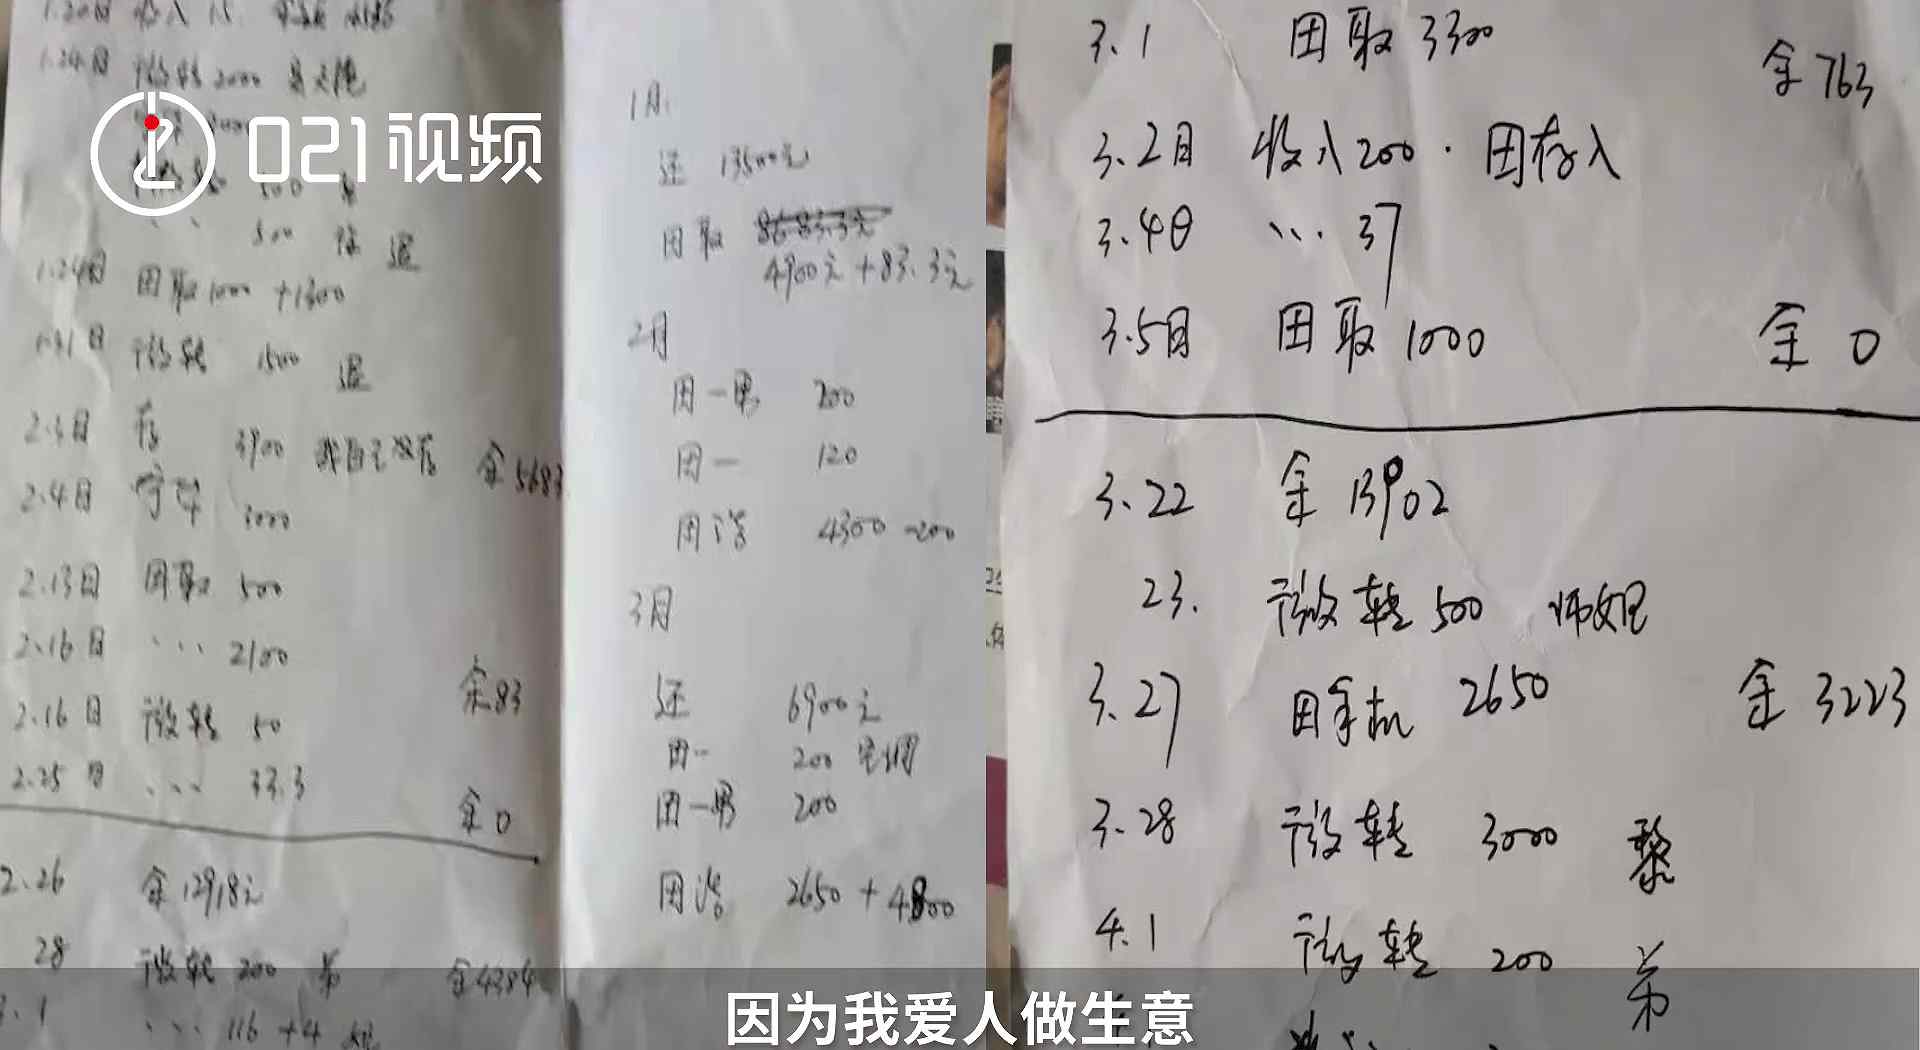 021视频
1.24日 微转 2000
500
500 退
1.24日 田取 1000 +1300
1.31日 微转 1500 退
2.3日 存 3900 我自己没存 余5683
2.4日 3000
2.13日 田取 500
2.16日 ... 2100
余83
2.16日 微转 50
2.25日 ... 33.3
余0
2.26 余12918元
28 微转 200 弟 余4384
3.1 ... 116 +4
1月
还 13500元
田取 8683.3元
4900元+83.3元
2月
田一男 200
田一 120
田 4300 -200
3月
还 6900元
田一 200
田一男 200
田 2650 + 4800
3.1 田取 3300
余763
3.2日 收入200.田存入
3.4日 ... 37
3.5日 田取 1000 余 0
3.22 余 13902
23. 微转 500 师姐
3.27 田手机 2650 余 3223
3.28 微转 3000 黎
4.1 微转 200 弟
因为我爱人做生意